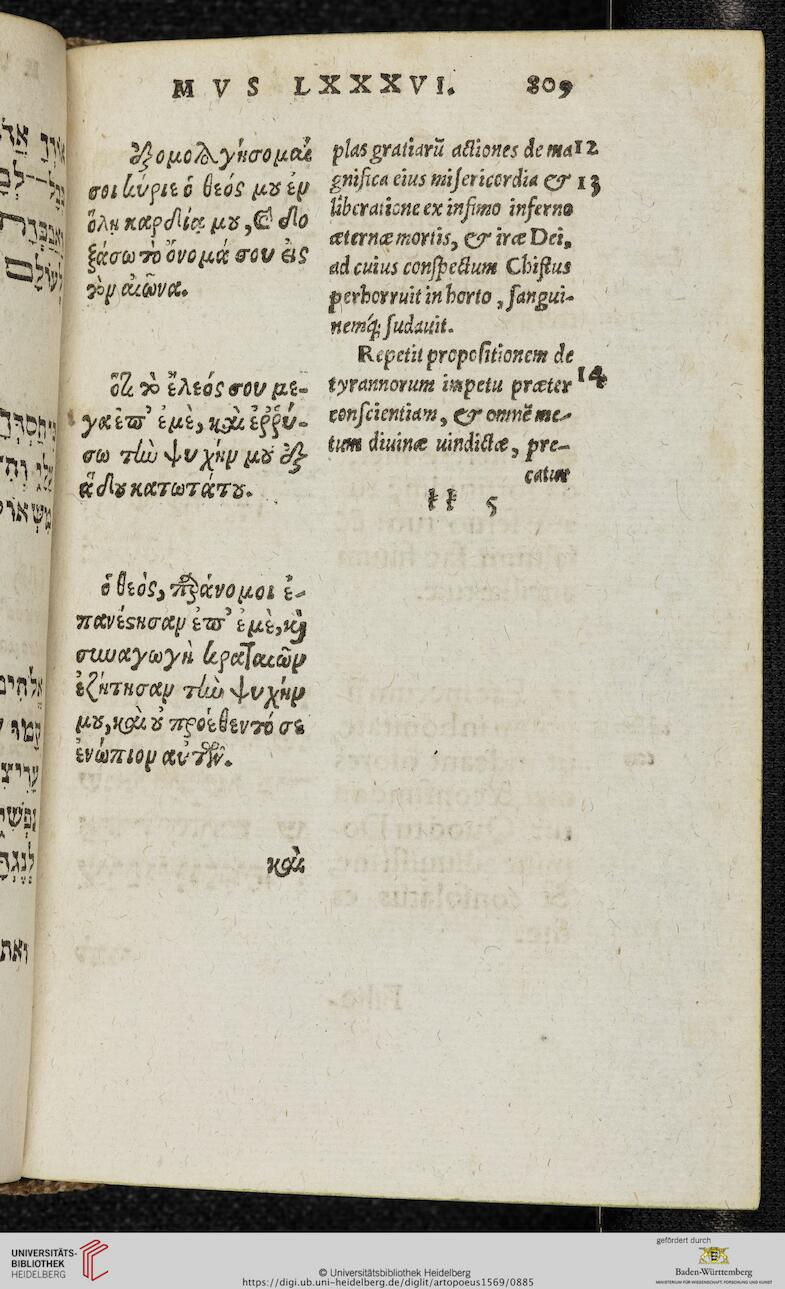 MVS LXXXVI. 809
ἐξομολογήσομαί
σοι κύριε ὁ θεός μου ἐν
ὅλῃ καρδίᾳ μου, καὶ δο
ξάσω τὸ ὄνομά σου εἰς
τὸν αἰῶνα.
ὅτι τὸ ἔλεός σου με-
γα ἐπ' ἐμὲ, καὶ ἐῤῥύ-
σω τὴν ψυχήν μου ἐξ
ᾅδου κατωτάτου.
ὁ θεὸς, παράνομοι ἐ-
πανέστησαν ἐπ' ἐμὲ, καὶ
συναγωγὴ κραταιῶν
ἐζήτησαν τὴν ψυχήν
μου, καὶ οὐ προέθεντό σε
ἐνώπιον αὐτῶν.
καὶ
plas gratiarū actiones de ma 12
gnifica eius misericordia & 13
liberatione ex infimo inferno
æternæ mortis, & iræ Dei,
ad cuius conspectum Chistus
perhorruit in horto, sangui-
nemq́; sudauit.
Repetit propositionem de
tyrannorum impetu præter 14
conscientiam, & omnē me-
tum diuinæ uindictæ, pre-
catur
5
UNIVERSITÄTS-
BIBLIOTHEK
HEIDELBERG
© Universitätsbibliothek Heidelberg
https://digi.ub.uni-heidelberg.de/diglit/artopoeus1569/0885
gefördert durch
Baden-Württemberg
MINISTERIUM FÜR WISSENSCHAFT, FORSCHUNG UND KUNST